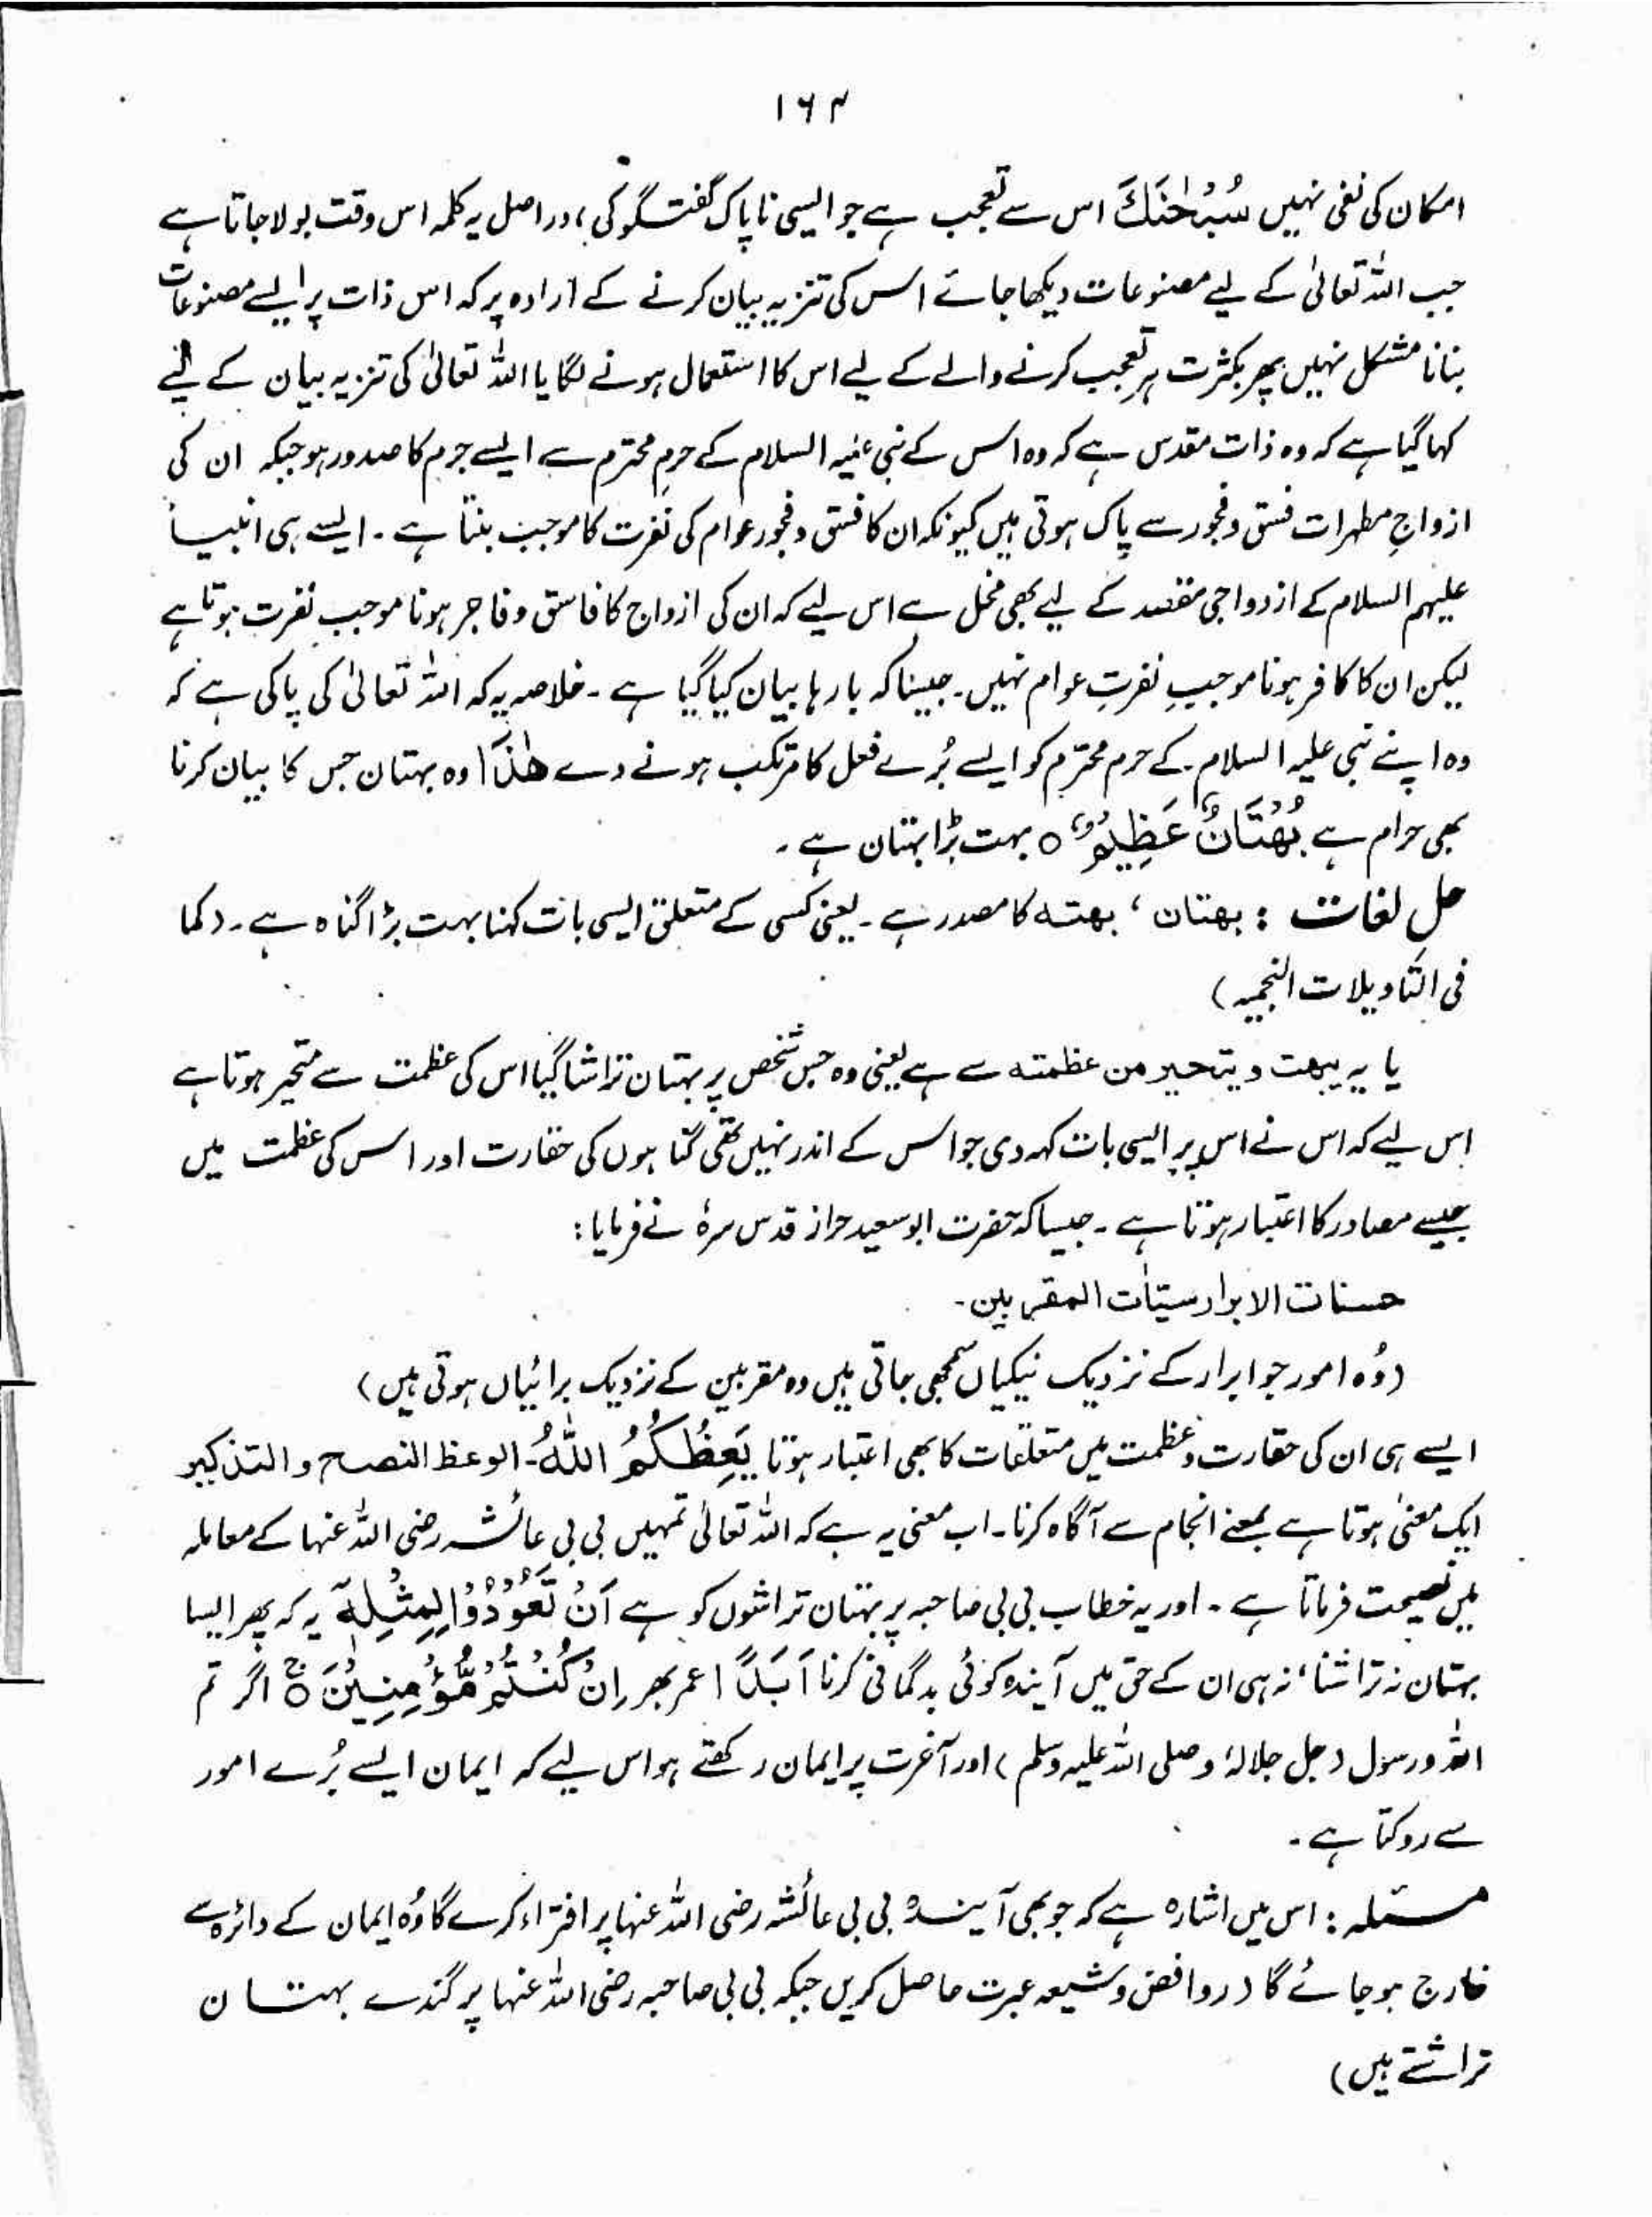 ۱۶۴
امکان کی نفی نہیں سُبْحٰنَكَ اس سے تعجب ہے جو ایسی ناپاک گفتگو کی، دراصل یہ کلمہ اس وقت بولا جاتا ہے
جب اللہ تعالیٰ کے لیے مصنوعات دیکھا جائے اس کی تنزیہ بیان کرنے کے ارادہ پر کہ اس ذات پر ایسے مصنوعات
بنانا مشکل نہیں پھر بکثرت ہر تعجب کرنے والے کے لیے اس کا استعمال ہونے لگا یا اللہ تعالیٰ کی تنزیہ بیان کے لیے
کہا گیا ہے کہ وہ ذات مقدس ہے کہ وہ اس کے نبی علیہ السلام کے حرم محترم سے ایسے جرم کا صدور ہو جبکہ ان کی
ازواجِ مطہرات فسق و فجور سے پاک ہوتی ہیں کیونکہ ان کا فسق و فجور عوام کی نفرت کا موجب بنتا ہے۔ ایسے ہی انبیاء
علیہم السلام کے ازدواجی مقصد کے لیے بھی مخل ہے اس لیے کہ ان کی ازواج کا فاسق و فاجر ہونا موجب نفرت ہوتا ہے
لیکن ان کا کافر ہونا موجبِ نفرتِ عوام نہیں۔ جیسا کہ بارہا بیان کیا گیا ہے۔ خلاصہ یہ کہ اللہ تعالیٰ کی پاکی ہے کہ
وہ اپنے نبی علیہ السلام کے حرم محترم کو ایسے بُرے فعل کا مرتکب ہونے دے هٰذَا وہ بہتان جس کا بیان کرنا
بھی حرام ہے بُهْتَانٌ عَظِيْمٌ ○ بہت بڑا بہتان ہے۔
حل لغات : بهتان ، بهته کا مصدر ہے۔ یعنی کسی کے متعلق ایسی بات کہنا بہت بڑا گناہ ہے۔ (کما
فی التاویلات النجمیہ)
یا یہ يبهت و يتحير من عظمته سے ہے یعنی وہ جس شخص پر بہتان تراشا گیا اس کی عظمت سے متحیر ہوتا ہے
اس لیے کہ اس نے اس پر ایسی بات کہہ دی جو اس کے اندر نہیں تھی گناہوں کی حقارت اور اس کی عظمت میں
جیسے مصادر کا اعتبار ہوتا ہے۔ جیسا کہ حضرت ابو سعید حراز قدس سرہٗ نے فرمایا:
حسنات الابرار سیئات المقربین۔
(وُہ امور جو ابرار کے نزدیک نیکیاں سمجھی جاتی ہیں وہ مقربین کے نزدیک برائیاں ہوتی ہیں)
ایسے ہی ان کی حقارت و عظمت میں متعلقات کا بھی اعتبار ہوتا يَعِظُكُمُ اللهُ۔ الوعظ النصح و التذكير
ایک معنیٰ ہوتا ہے بمعنے انجام سے آگاہ کرنا۔ اب معنی یہ ہے کہ اللہ تعالیٰ تمہیں بی بی عائشہ رضی اللہ عنہا کے معاملہ
میں نصیحت فرماتا ہے۔ اور یہ خطاب بی بی صاحبہ پر بہتان تراشوں کو ہے اَنْ تَعُوْدُوْا لِمِثْلِهٖٓ یہ کہ پھر ایسا
بہتان نہ تراشنا، نہ ہی ان کے حق میں آیندہ کوئی بدگمانی کرنا اَبَدًا عمر بھر اِنْ كُنْتُمْ مُّؤْمِنِيْنَ ○ اگر تم
اللہ و رسول (جل جلالہٗ و صلی اللہ علیہ وسلم) اور آخرت پر ایمان رکھتے ہو اس لیے کہ ایمان ایسے بُرے امور
سے روکتا ہے۔
مسئلہ : اس میں اشارہ ہے کہ جو بھی آیندہ بی بی عائشہ رضی اللہ عنہا پر افتراء کرے گا وُہ ایمان کے دائرہ سے
خارج ہو جائے گا (روافض و شیعہ عبرت حاصل کریں جبکہ بی بی صاحبہ رضی اللہ عنہا پر گندے بہتان
تراشتے ہیں)